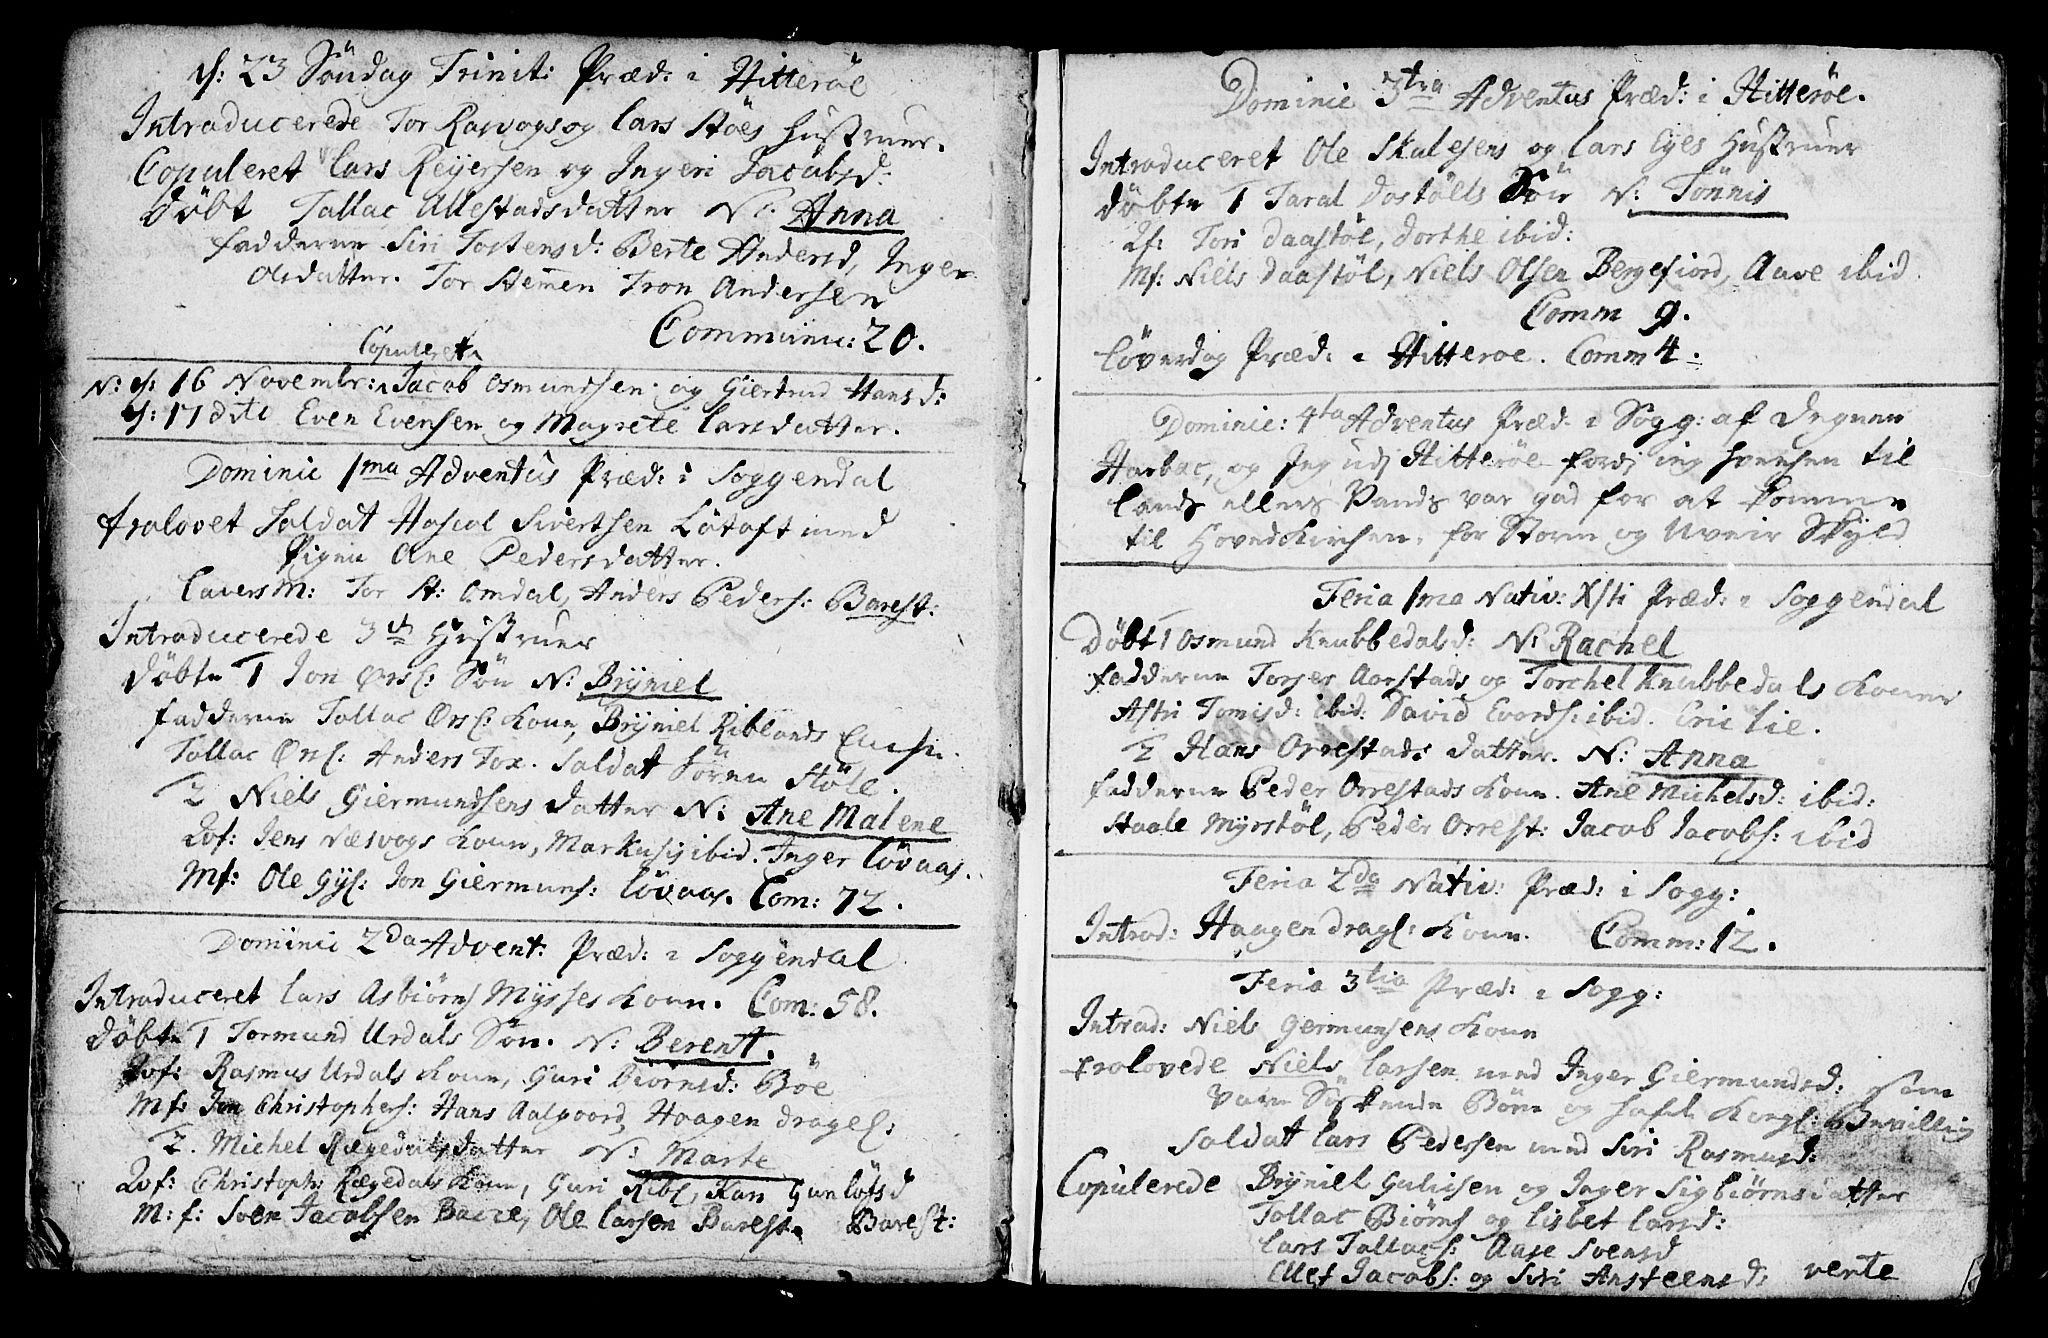 d: 23 Söndag Trinit: Præd: i Hitteröe
Introducerede Tor Rasvogs og Lars Stöes Hustruer.
Copuleret Lars Reÿersen og Ingeri Jacobsd:
Döbt Tallac Ullestads datter N: Anna
Fadderne Siri Tostensd: Berte Andersd, Inger
Olsdatter. Tor Stemmen Tron Andersen
Communic: 20.
Copuleret
N: d: 16 Novembr: Jacob Osmundsen og Giertrud Hansd:
d: 17 dito Even Evensen og Magrete Larsdatter.
Dominic 1ma Adventûs Præd: i Soggendal
Trolovet Soldat Hascal Sivertsen Lötoft med
Pigen Ane Pedersdatter.
Caver: M: Tor St: Omdal, Anders Peders: Barest:
Introducerede 3de Hustruer
Döbte 1 Jon Örs: Sön N: Brÿniel
Fadderne Tallac Örs: Kone, Brÿniel Riblands
Tallac Örs: Anders Fox. Soldat Sören Stöle.
2 Niels Giermundsens datter N: Ane Malene
Qvf: Jens Næsvogs Kone, Markusis ibid. Inger Lövaas.
Mf: Ole Gÿs: Jon Giermuns: Lövaas. Com: 72.
Dominic 2da Advent: Præd: i Soggendal
Introduceret Lars Asbiörns Mÿsses Kone. Com: 58.
Döbte 1 Tormund Urdals Sön. N: Berent.
Qvf: Rasmus Urdals Kone, Guri Biörnsd: Böe
Mf: Jon Christophers: Hans Aalgaard, Haagen Dragel:
2. Michel Rægedals datter N: Marte
Qvf: Christoph: Rægedals Kone, Guri Ribl, Kari Gunlöfsd
M: f: Sven Jacobsen Bacce, Ole Larsen Barest. Barest:
Dominic 3tia Adventus Præd: i Hitteröe.
Introduceret Ole Skalesens og Lars Eges Hustruer
Döbte 1 Taral Dostöls Sön N: Tönnis
Qf: Tori Daastöl, Dorthe ibid:
Mf: Niels Daastöl, Niels Olsen Bergefiord, Aave ibid.
Comm 9.
Löverdag Præd: i Hitteroe. Comm 4.
Dominic: 4ta Adventus Præd: i Sogg: af Degnen
Harbac, og Jeg ud Hitteröe fordj ing hvercken til
Lands ellers Vands var god for at komme
til Hoved Kirchen, for Storm og Uveir Skÿld
Feria 1ma Nativ: Xsti Præd: i Soggendal
Döbt 1 Osmund Knubbedalsd: N: Rachel
Fadderne Torger Aarstads og Torchel Knubbedals Koner
Astri Tomisd: ibid. David Evards: ibid. Eric Lie.
2 Hans Orrestads datter. N: Anna
Fadderne Peder Orrestads Kone. Ane Michelsd: ibid:
Staale Mÿrstöl, Peder Orrest: Jacob Jacobs: ibid
Feria 2da Nativ: Præd: i Sogg:
Introd: Haagen Dragl: Kone. Comm: 12.
Feria 3tia Præd: i Sogg:
Introd: Niels Germunsens Kone
Trolovede Niels Larsen med Inger Giermundsd: som
vare Söskende Börn og hafd Kongl: Bevilling
Soldat Lars Pedersen med Siri Rasmusd:
Copulerede Brÿniel Gulicsen og Inger Sigbiörnsdatter
Tallac Biörns og Lisbet Larsd:
Lars Tallacs: Aase Svensd
Ellef Jacobs: og Siri Ansteensd: verte